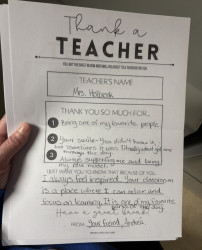 Thank a
TEACHER
TEACHER'S NAME
Mrs. Holbrook
THANK YOU SO MUCH FOR...
1 Being one of my favorite people.
2 Your smile - You didn't know it,
but sometimes it was
through the day.
3 Always supporting me and being
my role model.
I always feel inspired. Your classroom
is a place where I can relax and
focus on learning. It is one of my favorite
Have a great break!
FROM: Your friend, Andrea